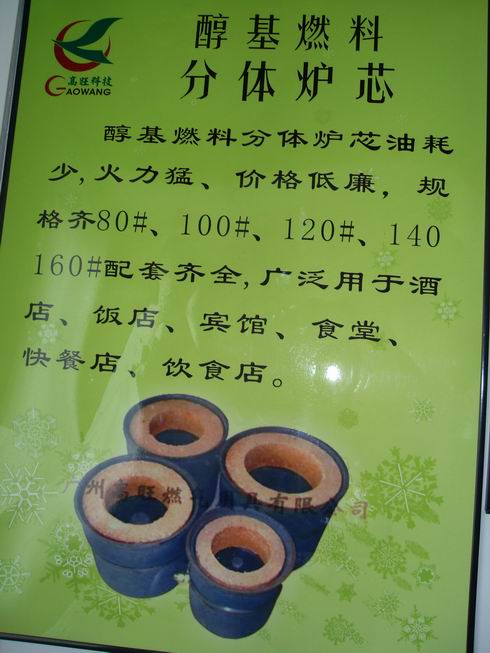 高旺科技
GAOWANG
醇基燃料
分体炉芯
醇基燃料分体炉芯油耗
少,火力猛、价格低廉，规
格齐80#、100#、120#、140
160#配套齐全,广泛用于酒
店、饭店、宾馆、食堂、
快餐店、饮食店。
广州高旺燃化用具有限公司